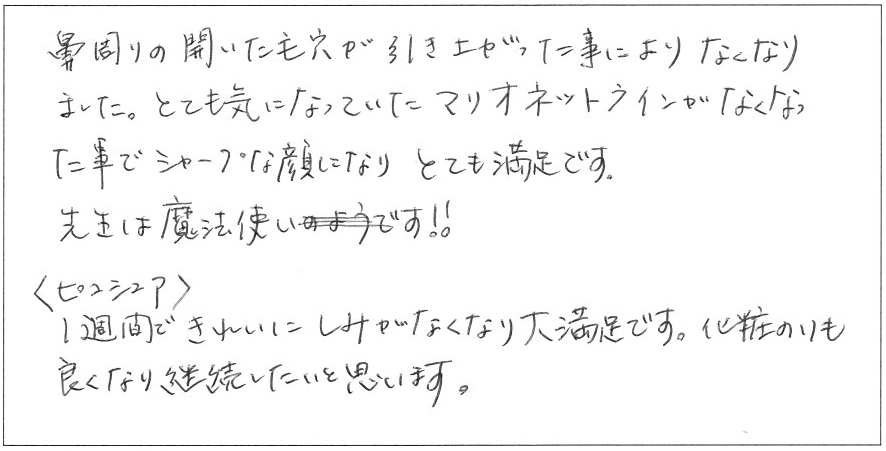 鼻周りの開いた毛穴が引き上がった事によりなくなり
ました。とても気になっていたマリオネットラインがなくなっ
た事でシャープな顔になりとても満足です。
先生は魔法使いのようです!!
〈ピコシュア〉
1週間できれいにしみがなくなり大満足です。化粧のりも
良くなり継続したいと思います。